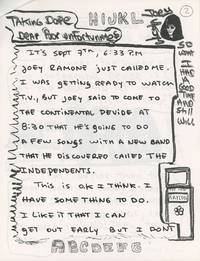 TAKING DOPE
DEAR POOR UNFORTUNATES
HIJKL
JOEY
2
IT'S SEPT 7TH, 6:33 P.M
JOEY RAMONE JUST CALLED ME.
I WAS GETTING READY TO WATCH
T.V., BUT JOEY SAID TO COME TO
THE CONTINENTAL DEVIDE AT
8:30 THAT HE'S GOING TO DO
A FEW SONGS WITH A NEW BAND
THAT HE DISCOVERED CALLED THE
INDEPENDENTS.
THIS IS O.K I THINK. I
HAVE SOMETHING TO DO.
I LIKE IT THAT I CAN
GET OUT EARLY BUT I DONT
ABCDEFG
SO
WHAT
I HAD
A GOOD
TIME
AND
STILL
WILL